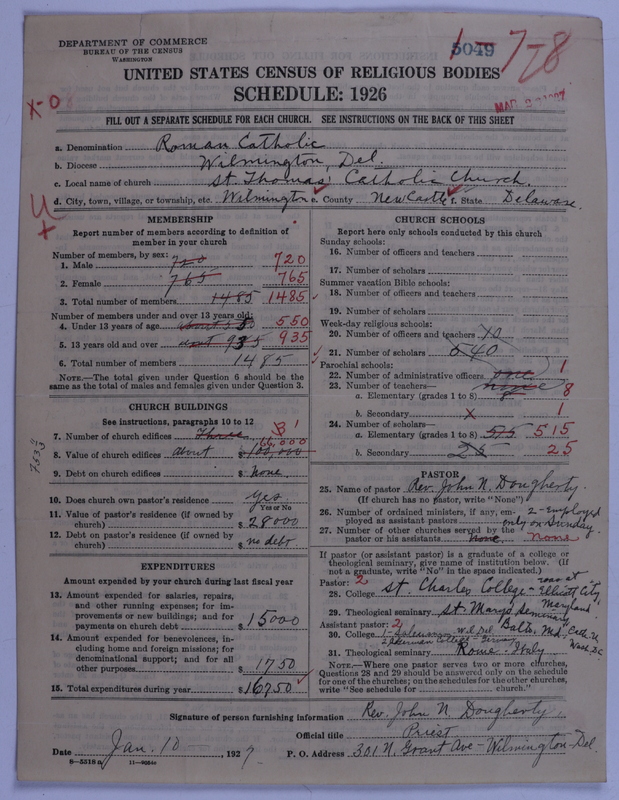 DEPARTMENT OF COMMERCE
BUREAU OF THE CENSUS
WASHINGTON
5049
1-7-28
UNITED STATES CENSUS OF RELIGIOUS BODIES
SCHEDULE: 1926
X-0
FILL OUT A SEPARATE SCHEDULE FOR EACH CHURCH. SEE INSTRUCTIONS ON THE BACK OF THIS SHEET
a. Denomination Roman Catholic
b. Diocese Wilmington, Del.
c. Local name of church St. Thomas' Catholic Church.
d. City, town, village, or township, etc. Wilmington e. County New Castle f. State Delaware.
MEMBERSHIP
Report number of members according to definition of
member in your church
Number of members, by sex:
1. Male 720 720
2. Female 765 765
3. Total number of members 1485 1485
Number of members under and over 13 years old:
4. Under 13 years of age about 550 550
5. 13 years old and over about 935 935
6. Total number of members 1485
NOTE.—The total given under Question 6 should be
same as the total of males and females given under Question 3.
CHURCH BUILDINGS
See instructions, paragraphs 10 to 12
7. Number of church edifices Three 1
8. Value of church edifices about $ 100,000
9. Debt on church edifices $ None.
10. Does church own pastor's residence yes
Yes or No
11. Value of pastor's residence (if owned by
church) $ 28000
12. Debt on pastor's residence (if owned by
church) $ no debt
EXPENDITURES
Amount expended by your church during last fiscal year
13. Amount expended for salaries, repairs,
and other running expenses; for im-
provements or new buildings; and for
payments on church debt $ 15000
14. Amount expended for benevolences, in-
cluding home and foreign missions; for
denominational support; and for all
other purposes $ 1750
15. Total expenditures during year $ 16750
CHURCH SCHOOLS
Report here only schools conducted by this church
Sunday schools:
16. Number of officers and teachers
17. Number of scholars
Summer vacation Bible schools:
18. Number of officers and teachers
19. Number of scholars
Week-day religious schools:
20. Number of officers and teachers 10
21. Number of scholars 640
Parochial schools:
22. Number of administrative officers one 1
23. Number of teachers—
a. Elementary (grades 1 to 8) 8 8
b. Secondary X 1
24. Number of scholars—
a. Elementary (grades 1 to 8) 575 515
b. Secondary 25 25
PASTOR
25. Name of pastor Rev. John N. Dougherty.
(If church has no pastor, write "None")
26. Number of ordained ministers, if any, em- 2-employed
ployed as assistant pastors only on Sunday.
27. Number of other churches served by the
pastor or his assistants None. None
If pastor (or assistant pastor) is a graduate of a college or
theological seminary, give name of institution below. (If
not a graduate, write "No" in the space indicated.)
Pastor: 2
28. College St. Charles College - near at Ellicott City, Maryland
29. Theological seminary St. Marys Seminary Balto. Md. Cath. U. Wash. D.C
Assistant pastor: 2
30. College 1-Salesianum Wil. Del.
31. Theological seminary Rome. Italy
NOTE.—Where one pastor serves two or more churches,
Questions 28 and 29 should be answered only on the schedule
for one of the churches; on the schedules for the other churches,
write "See schedule for church."
Signature of person furnishing information Rev. John N Dougherty.
Official title Priest
Date Jan. 10 1927.
P. O. Address 301 N. Grant Ave - Wilmington - Del.
8-5518 a